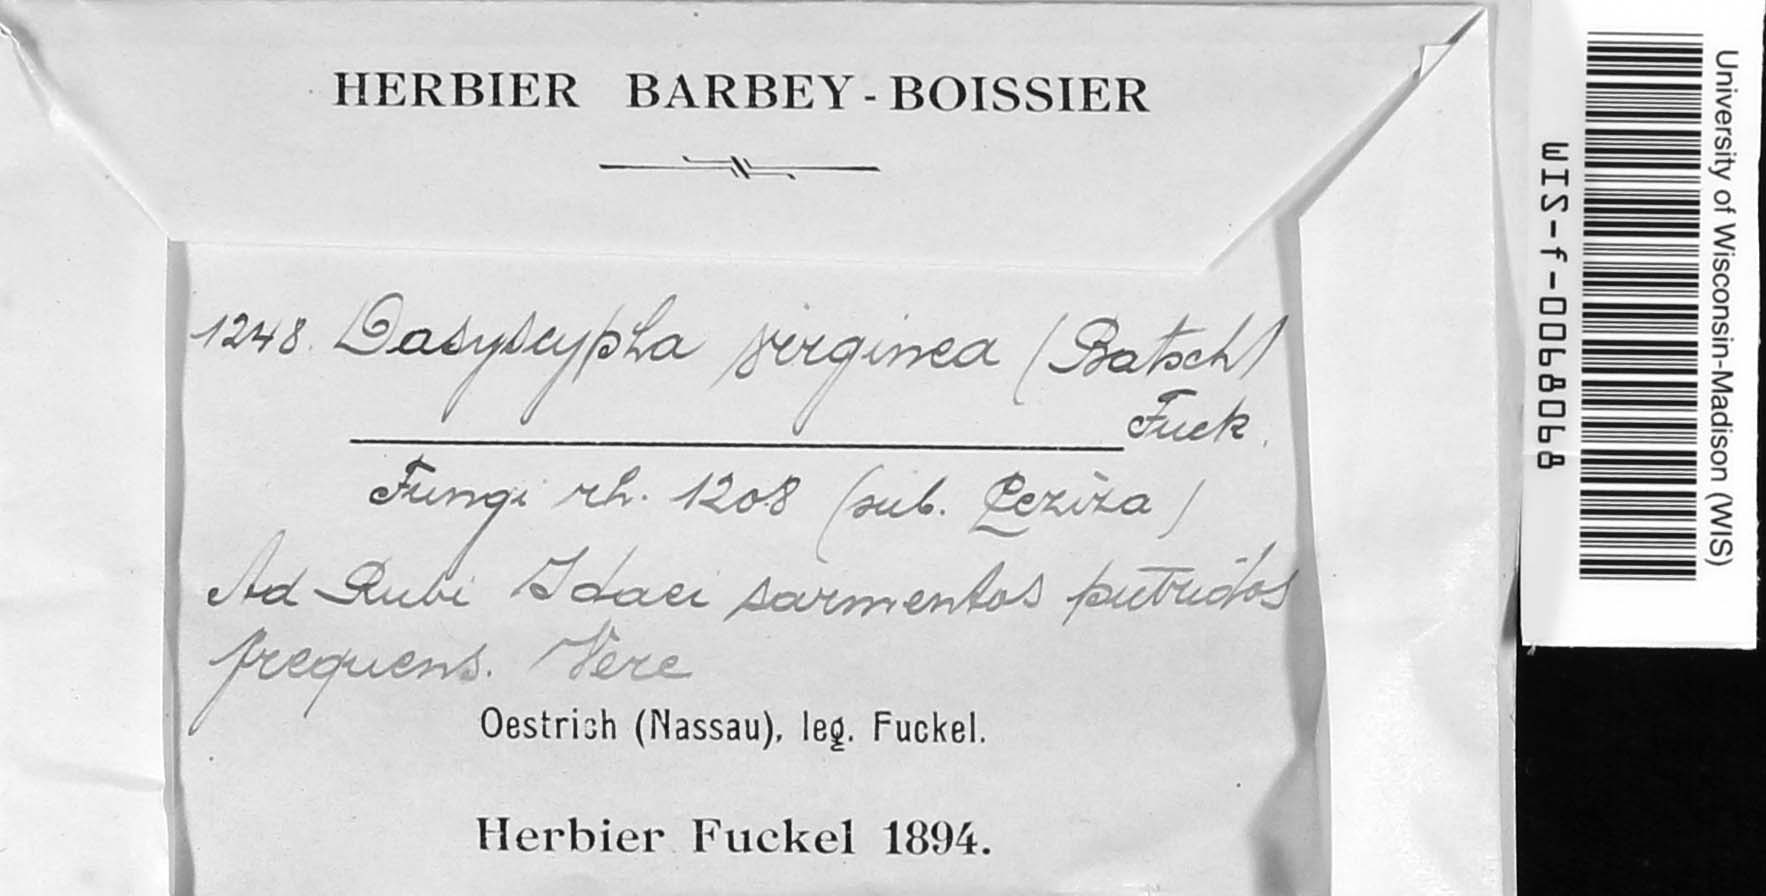 HERBIER BARBEY-BOISSIER
1248. Dasyscypha virginea (Batsch)
Fuck.
Fungi rh. 1208 (sub. Peziza)
Ad Rubi Idaei sarmentos putridos
frequens. Vere
Oestrich (Nassau), leg. Fuckel.
Herbier Fuckel 1894.
University of Wisconsin-Madison (WIS)
WIS-f-0068068